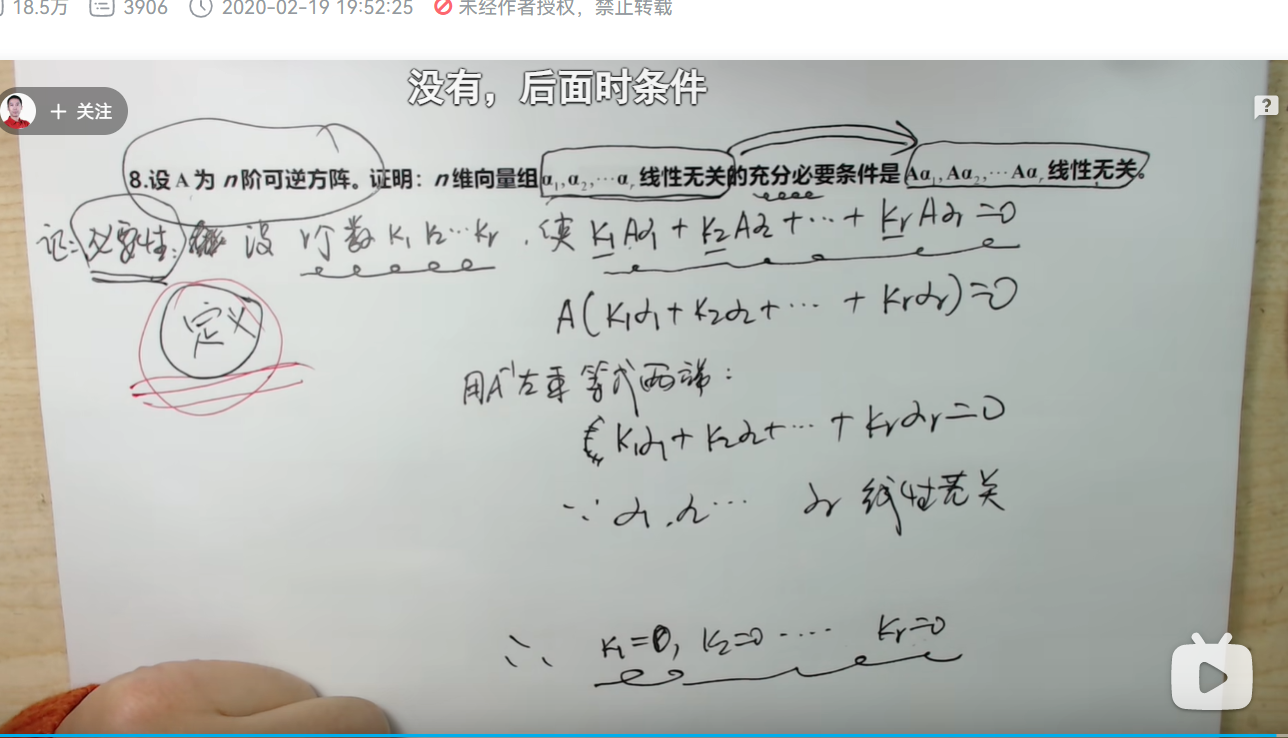 18.5万 3906 2020-02-19 19:52:25 未经作者授权，禁止转载
没有，后面时条件
+ 关注
?
8.设 A 为 n 阶可逆方阵。证明：n 维向量组 α₁,α₂,⋯αᵣ 线性无关的充分必要条件是 Aα₁,Aα₂,⋯Aαᵣ 线性无关。
证：必要性： 设 r个数 k₁ k₂⋯kᵣ，使 k₁Aα₁+k₂Aα₂+⋯+kᵣAαᵣ=0
定义
A(k₁α₁+k₂α₂+⋯+kᵣαᵣ)=0
用A⁻¹左乘等式两端：
k₁α₁+k₂α₂+⋯+kᵣαᵣ=0
∵ α₁,α₂⋯ αᵣ 线性无关
∴ k₁=0, k₂=0 ⋯⋯ kᵣ=0